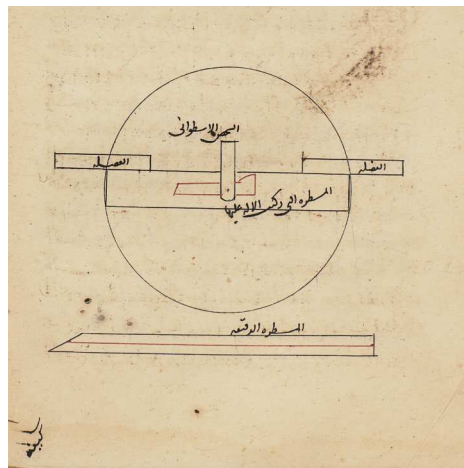 السهم الاسطوانى
الفضله
الفضله
المسطره التى ركبت الاله عليها
المسطره الدقيقه